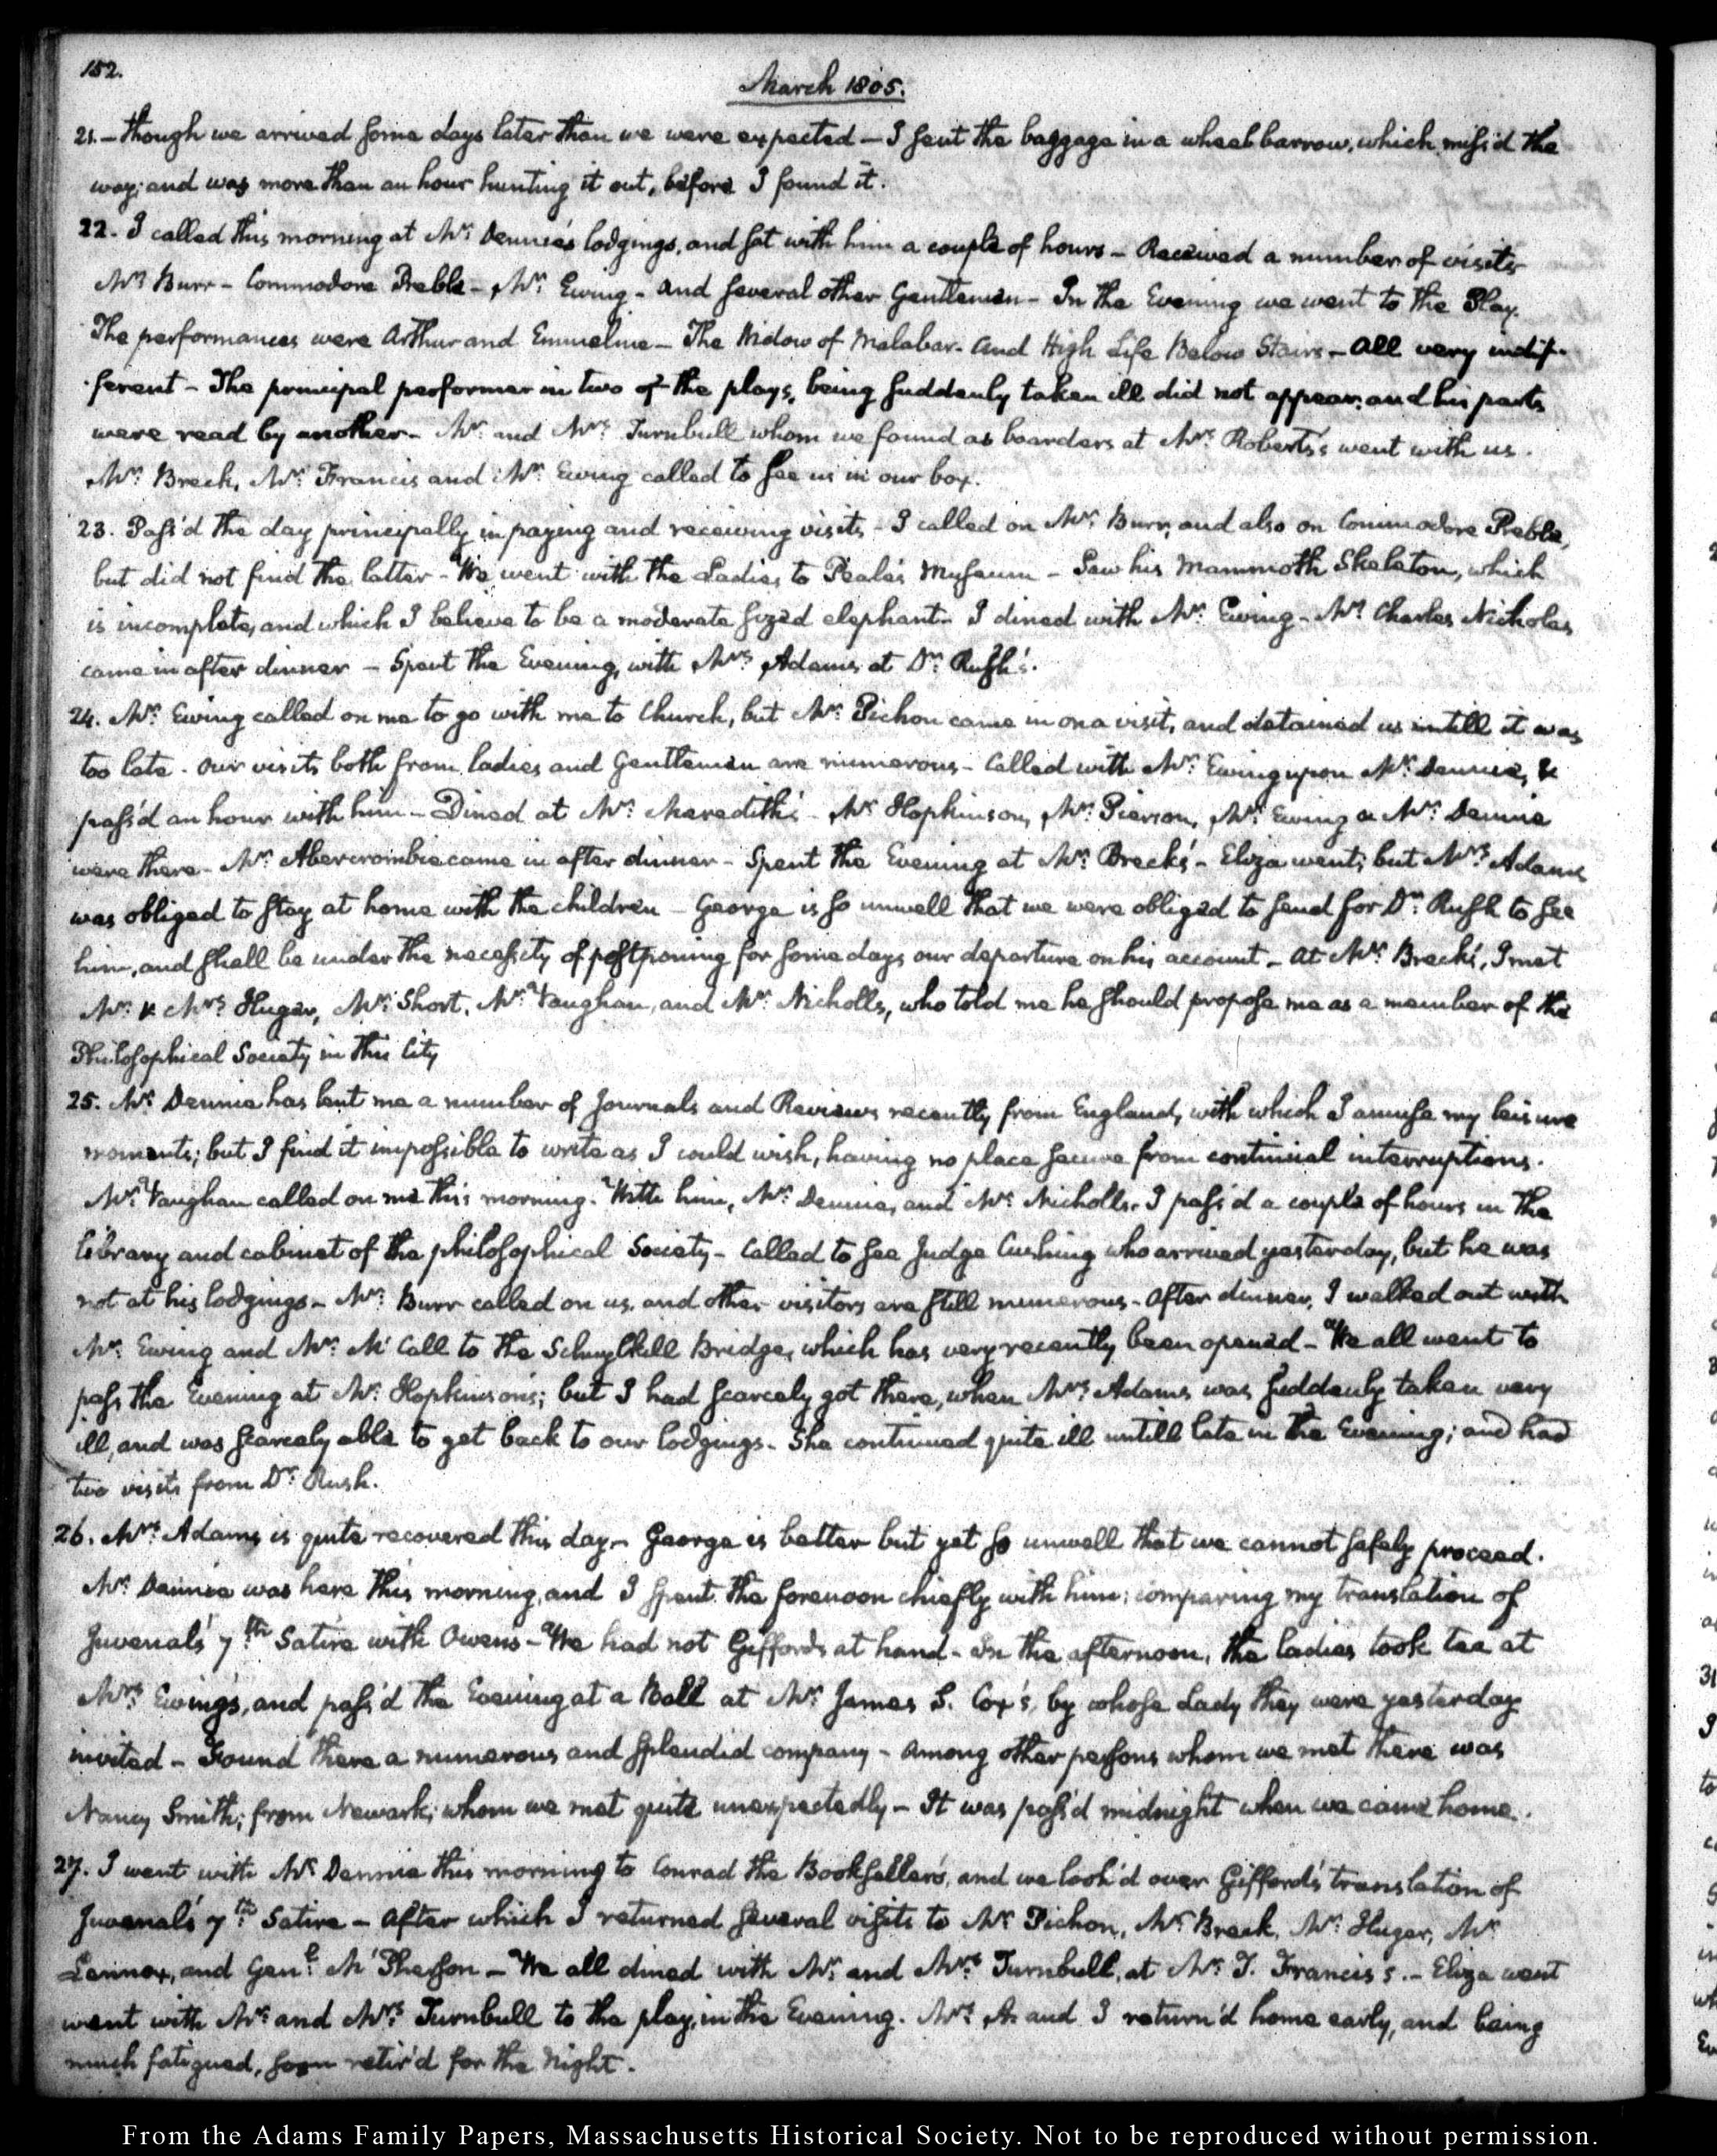 152.
March 1805.
21. – though we arrived some days later than we were expected – I sent the baggage in a wheelbarrow, which miss'd the
way; and was more than an hour hunting it out, before I found it.
22. I called this morning at Mr: Dennie's lodgings, and sat with him a couple of hours – Received a number of visits
Mr: Burr – Commodore Preble – Mr: Ewing – and several other Gentlemen – In the Evening we went to the Play.
The performances were Arthur and Emmeline – The Widow of Malabar – and High Life Below Stairs – All very indif-
-ferent – The principal performer in two of the plays, being suddenly taken ill did not appear; and his parts
were read by another – Mr: and Mrs: Turnbull whom we found as boarders at Mrs: Roberts's went with us.
Mr: Breck, Mr: Francis and Mr: Ewing called to see us in our box.
23. Pass'd the day principally in paying and receiving visits – I called on Mr: Burr, and also on Commodore Preble,
but did not find the latter – We went with the Ladies to Peale's Museum – Saw his Mammoth Skeleton, which
is incomplete, and which I believe to be a moderate sized elephant – I dined with Mr: Ewing – Mr: Charles Nicholas
came in after dinner – Spent the Evening, with Mrs: Adams at Dr: Rush's.
24. Mr: Ewing called on me to go with me to Church, but Mr: Pichon came in on a visit, and detained us untill it was
too late. Our visits both from ladies and Gentlemen are numerous – Called with Mr: Ewing upon Mr: Dennie, &
pass'd an hour with him – Dined at Mr: Meredith's – Mr: Hopkinson, Mr: Pierson, Mr: Ewing & Mr: Dennie
were there – Mr: Abercrombie came in after dinner – Spent the Evening at Mr: Breck's – Eliza went; but Mrs: Adams
was obliged to stay at home with the children – George is so unwell that we were obliged to send for Dr: Rush to see
him, and shall be under the necessity of postponing for some days our departure on his account – At Mr: Breck's, I met
Mr: & Mrs: Huger, Mr: Short, Mr: Vaughan, and Mr: Nicholls, who told me he should propose me as a member of the
Philosophical Society in this City
25. Mr: Dennie has lent me a number of Journals and Reviews recently from England, with which I amuse my leisure
moments; but I find it impossible to write as I could wish, having no place secure from continual interruptions.
Mr: Vaughan called on me this morning. With him, Mr: Dennie, and Mr: Nicholls. I pass'd a couple of hours in the
library and cabinet of the philosophical Society – Called to see Judge Cushing who arrived yesterday, but he was
not at his lodgings – Mr: Burr called on us, and other visitors are still numerous – After dinner, I walked out with
Mr: Ewing and Mr: Mc Call to the Schuylkill Bridge, which has very recently been opened – We all went to
pass the Evening at Mr: Hopkinson's; but I had scarcely got there, when Mrs: Adams was suddenly taken very
ill, and was scarcely able to get back to our lodgings. She continued quite ill untill late in the Evening; and had
two visits from Dr: Rush.
26. Mrs: Adams is quite recovered this day – George is better but yet so unwell that we cannot safely proceed.
Mr: Dennie was here this morning, and I spent the forenoon chiefly with him; comparing my translation of
Juvenal's 7th: Satire with Owen's – We had not Gifford's at hand – In the afternoon, the ladies took tea at
Mrs: Ewing's, and pass'd the Evening at a Ball at Mr: James S. Cox's, by whose Lady they were yesterday
invited – Found there a numerous and splendid company – Among other persons whom we met there was
Nancy Smith; from Newark; whom we met quite unexpectedly – It was pass'd midnight when we came home.
27. I went with Mr: Dennie this morning to Conrad the Bookseller's, and we look'd over Gifford's translation of
Juvenal's 7th: Satire – After which I returned several visits to Mr: Pichon, Mr: Breck, Mr: Huger, Mr:
Lennox, and Genl: Mc Pherson – We all dined with Mr: and Mrs: Turnbull, at Mr: T. Francis's. – Eliza went
went with Mr: and Mrs: Turnbull to the play, in the Evening. Mrs: A. and I return'd home early, and being
much fatigued, soon retir'd for the Night.
From the Adams Family Papers, Massachusetts Historical Society. Not to be reproduced without permission.